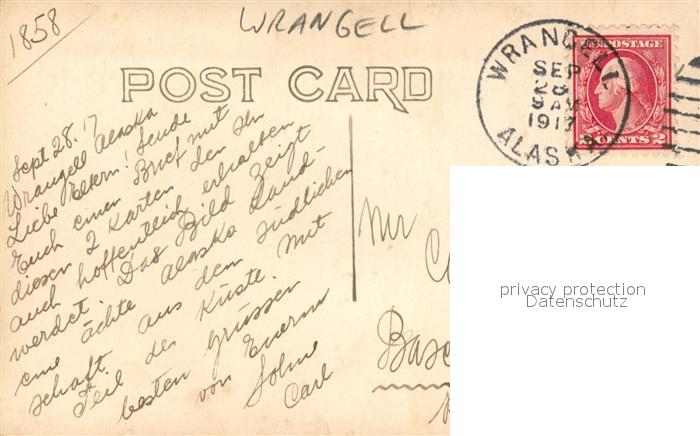 1858
WRANGELL
POST CARD
WRANGELL
SEP
28
9 AM
1917
ALASKA
U.S. POSTAGE
2 CENTS 2
Sept 28. 17
Wrangell Alaska
Liebe Eltern! Sende
Euch einen Brief mit
diesen 2 Karten den Ihr
auch hoffentlich erhalten
werdet. Das Bild zeigt
eine ächte Alaska Land-
schaft aus dem südlichen
Teil der Küste. Mit
besten Grüssen
von Euerm
Sohne
Carl
Mr
Base
privacy protection
Datenschutz